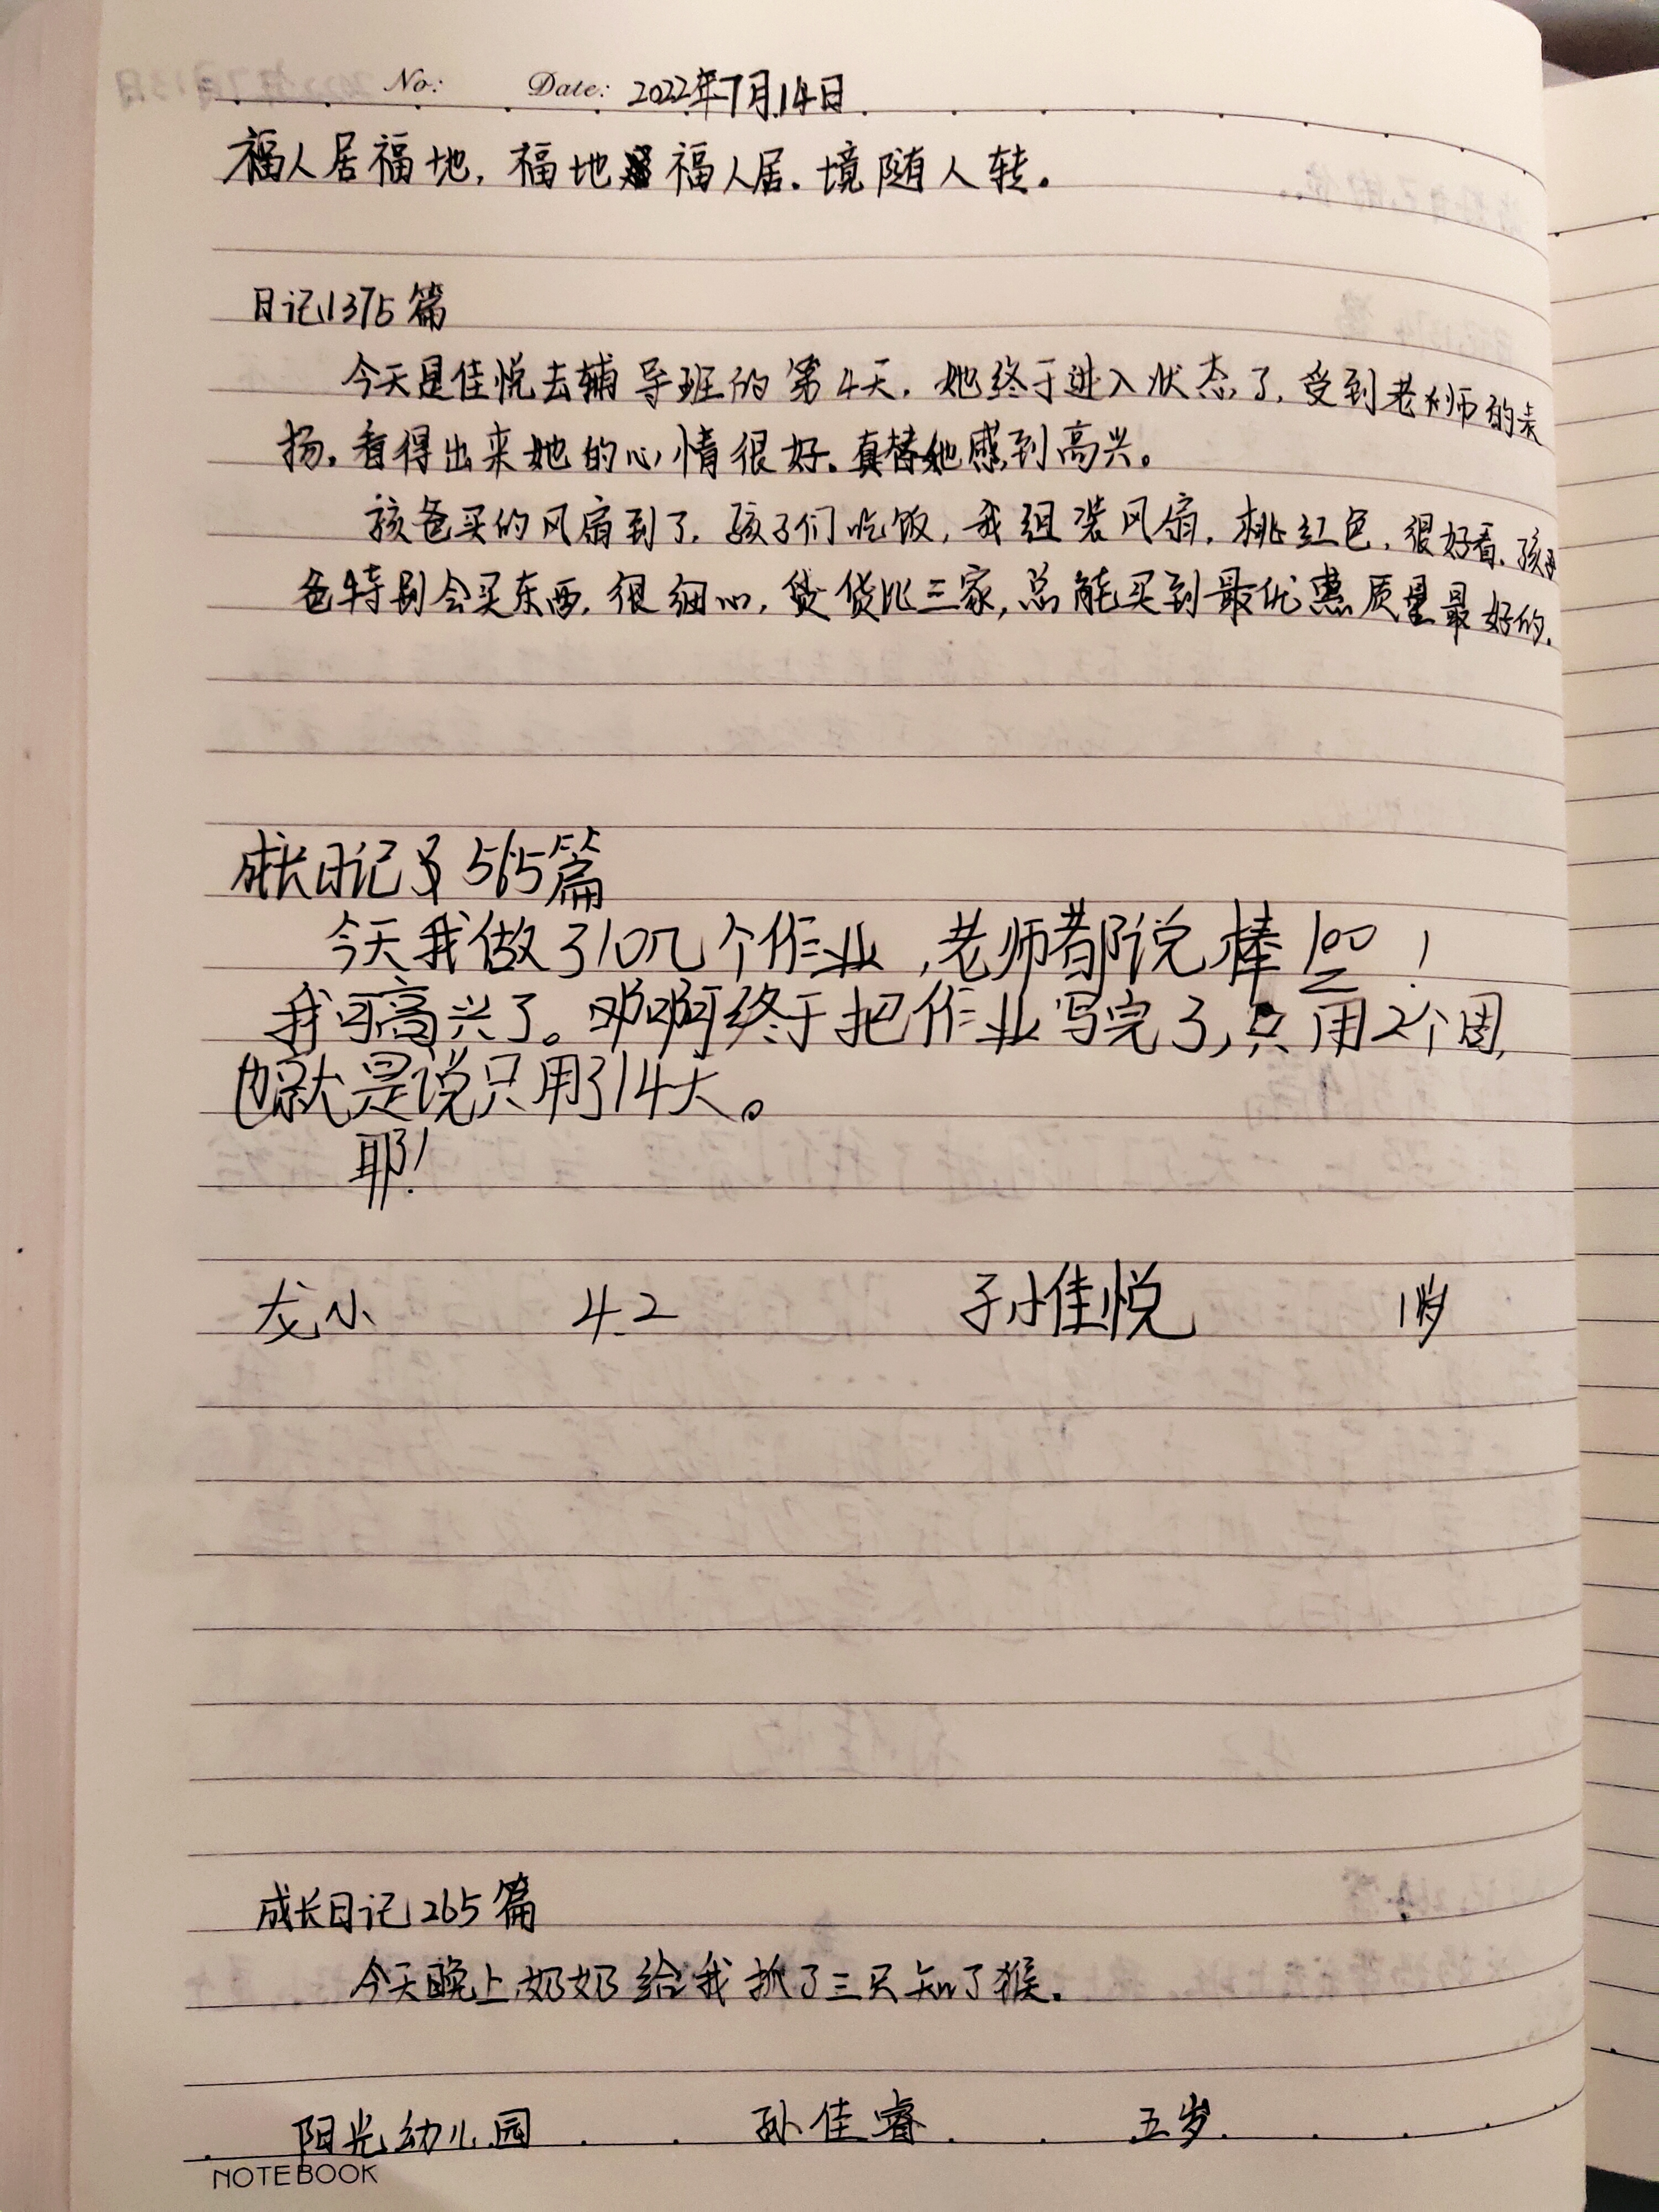 No: Date: 2022年7月14日
福人居福地，福地福人居．境随人转．
日记1375篇
今天是佳悦去辅导班的第4天．她终于进入状态了，受到老师的表
扬．看得出来她的心情很好．真替她感到高兴。
孩爸买的风扇到了．孩子们吃饭，我组装风扇．桃红色．很好看．孩
爸特别会买东西．很细心，货比三家，总能买到最优惠质量最好的．
成长日记 565篇
今天我做了10几个作业，老师都说棒100！
我可高兴了。啊终于把作业写完了，只用2个周，
也就是说只用了14天。
耶！
龙小 4.2 孙佳悦 岁
成长日记265篇
今天晚上奶奶给我抓了三只知了猴．
阳光幼儿园 孙佳睿 五岁
NOTEBOOK